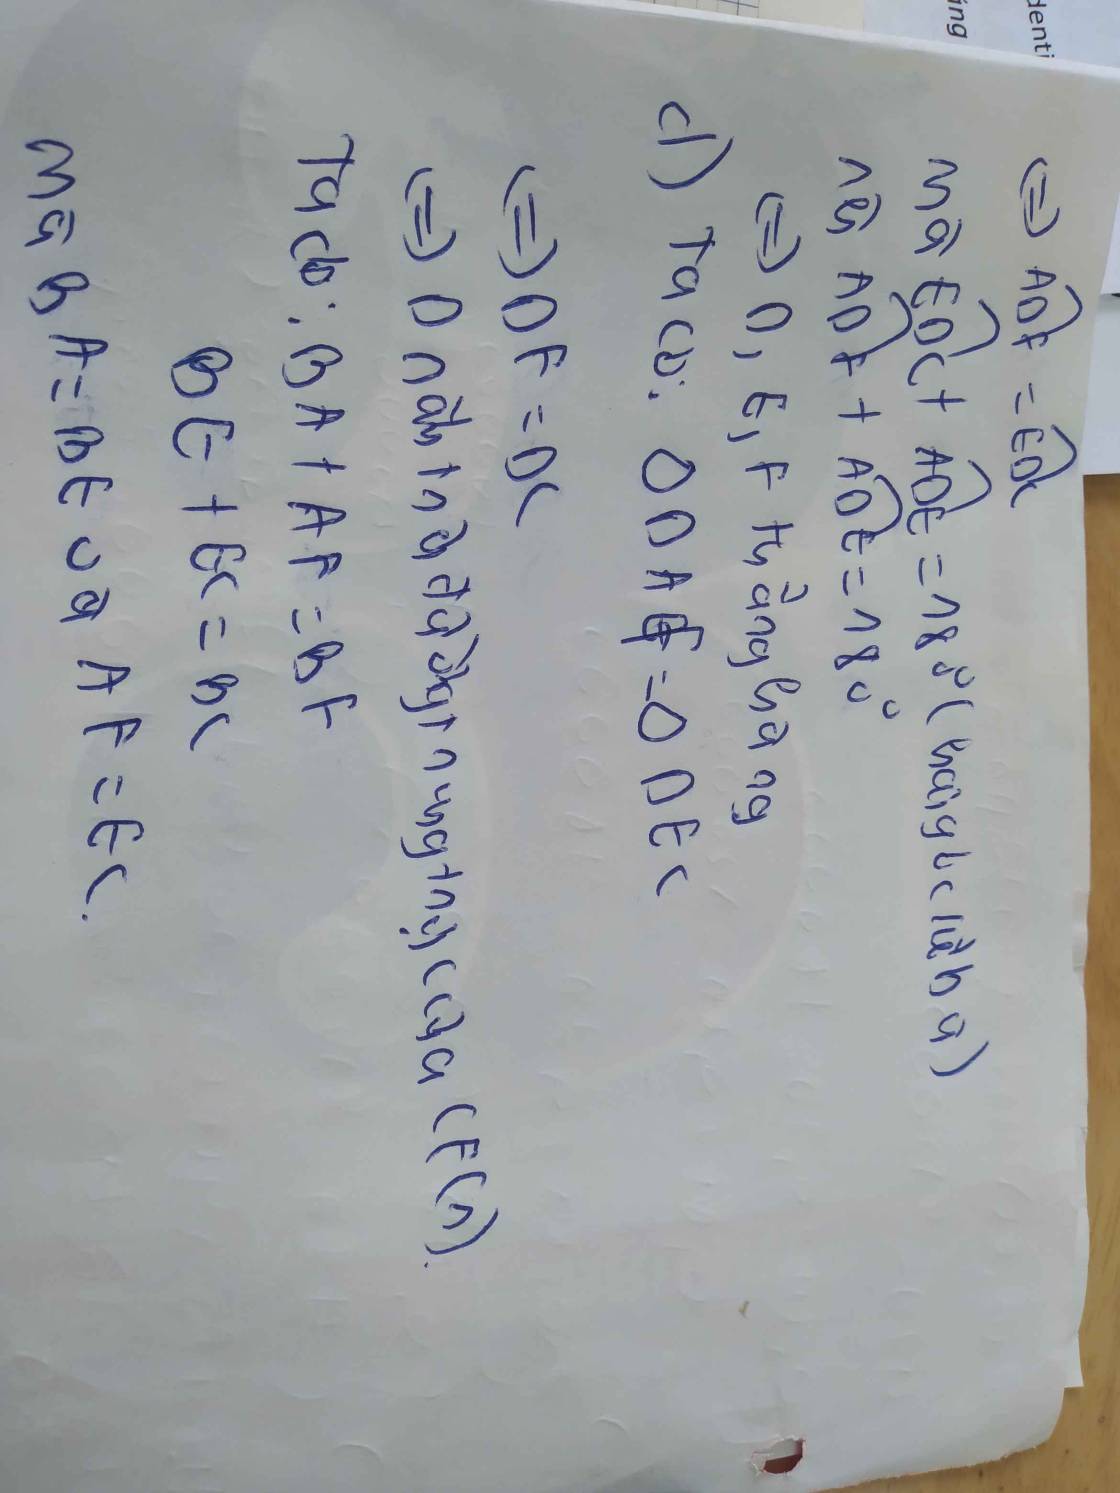 denti
ing
⇒ ADF = EDC
mà EDC + ADE = 180° (hàng)
nên ADF + ADE = 180°
⇒ D, E, F thẳng hàng
d) Ta có: △DAF = △DEC
⇒ DF = DC
⇒ D nằm trên đường trung trực của CF (1).
Ta có: BA + AF = BF
BE + EC = BC
Mà BA = BE và AF = EC.